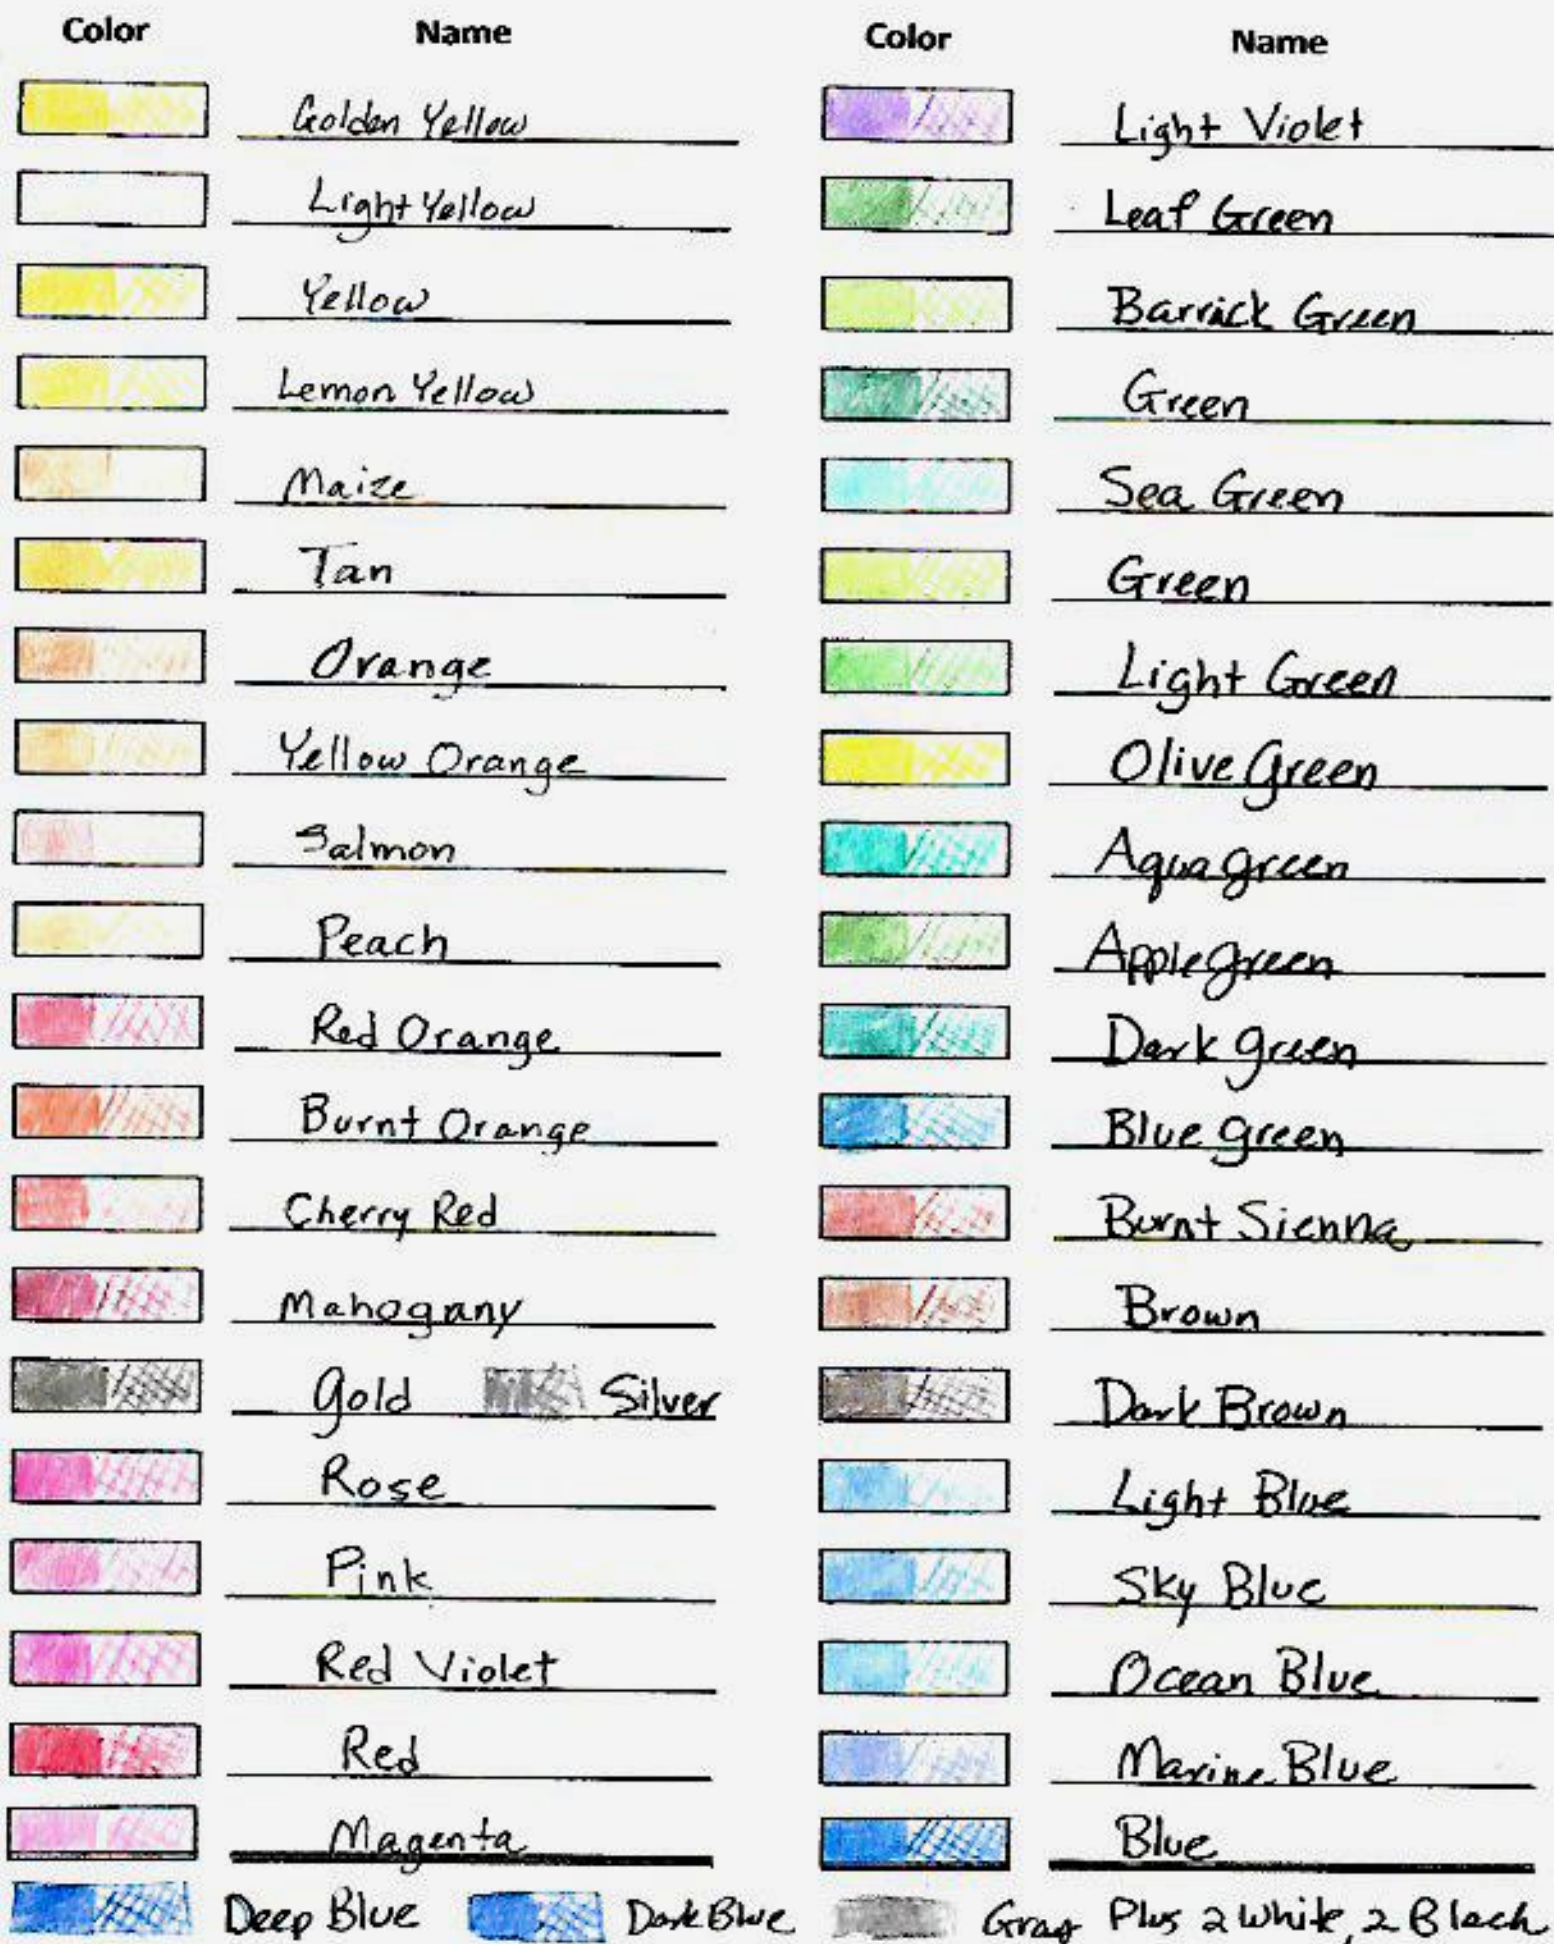 Color Name
Golden Yellow
Light Yellow
Yellow
Lemon Yellow
Maize
Tan
Orange
Yellow Orange
Salmon
Peach
Red Orange
Burnt Orange
Cherry Red
Mahogany
Gold Silver
Rose
Pink
Red Violet
Red
Magenta
Color Name
Light Violet
Leaf Green
Barrick Green
Green
Sea Green
Green
Light Green
Olive Green
Aqua green
Apple green
Dark green
Blue green
Burnt Sienna
Brown
Dark Brown
Light Blue
Sky Blue
Ocean Blue
Marine Blue
Blue
Deep Blue Dark Blue Gray Plus 2 White, 2 Black